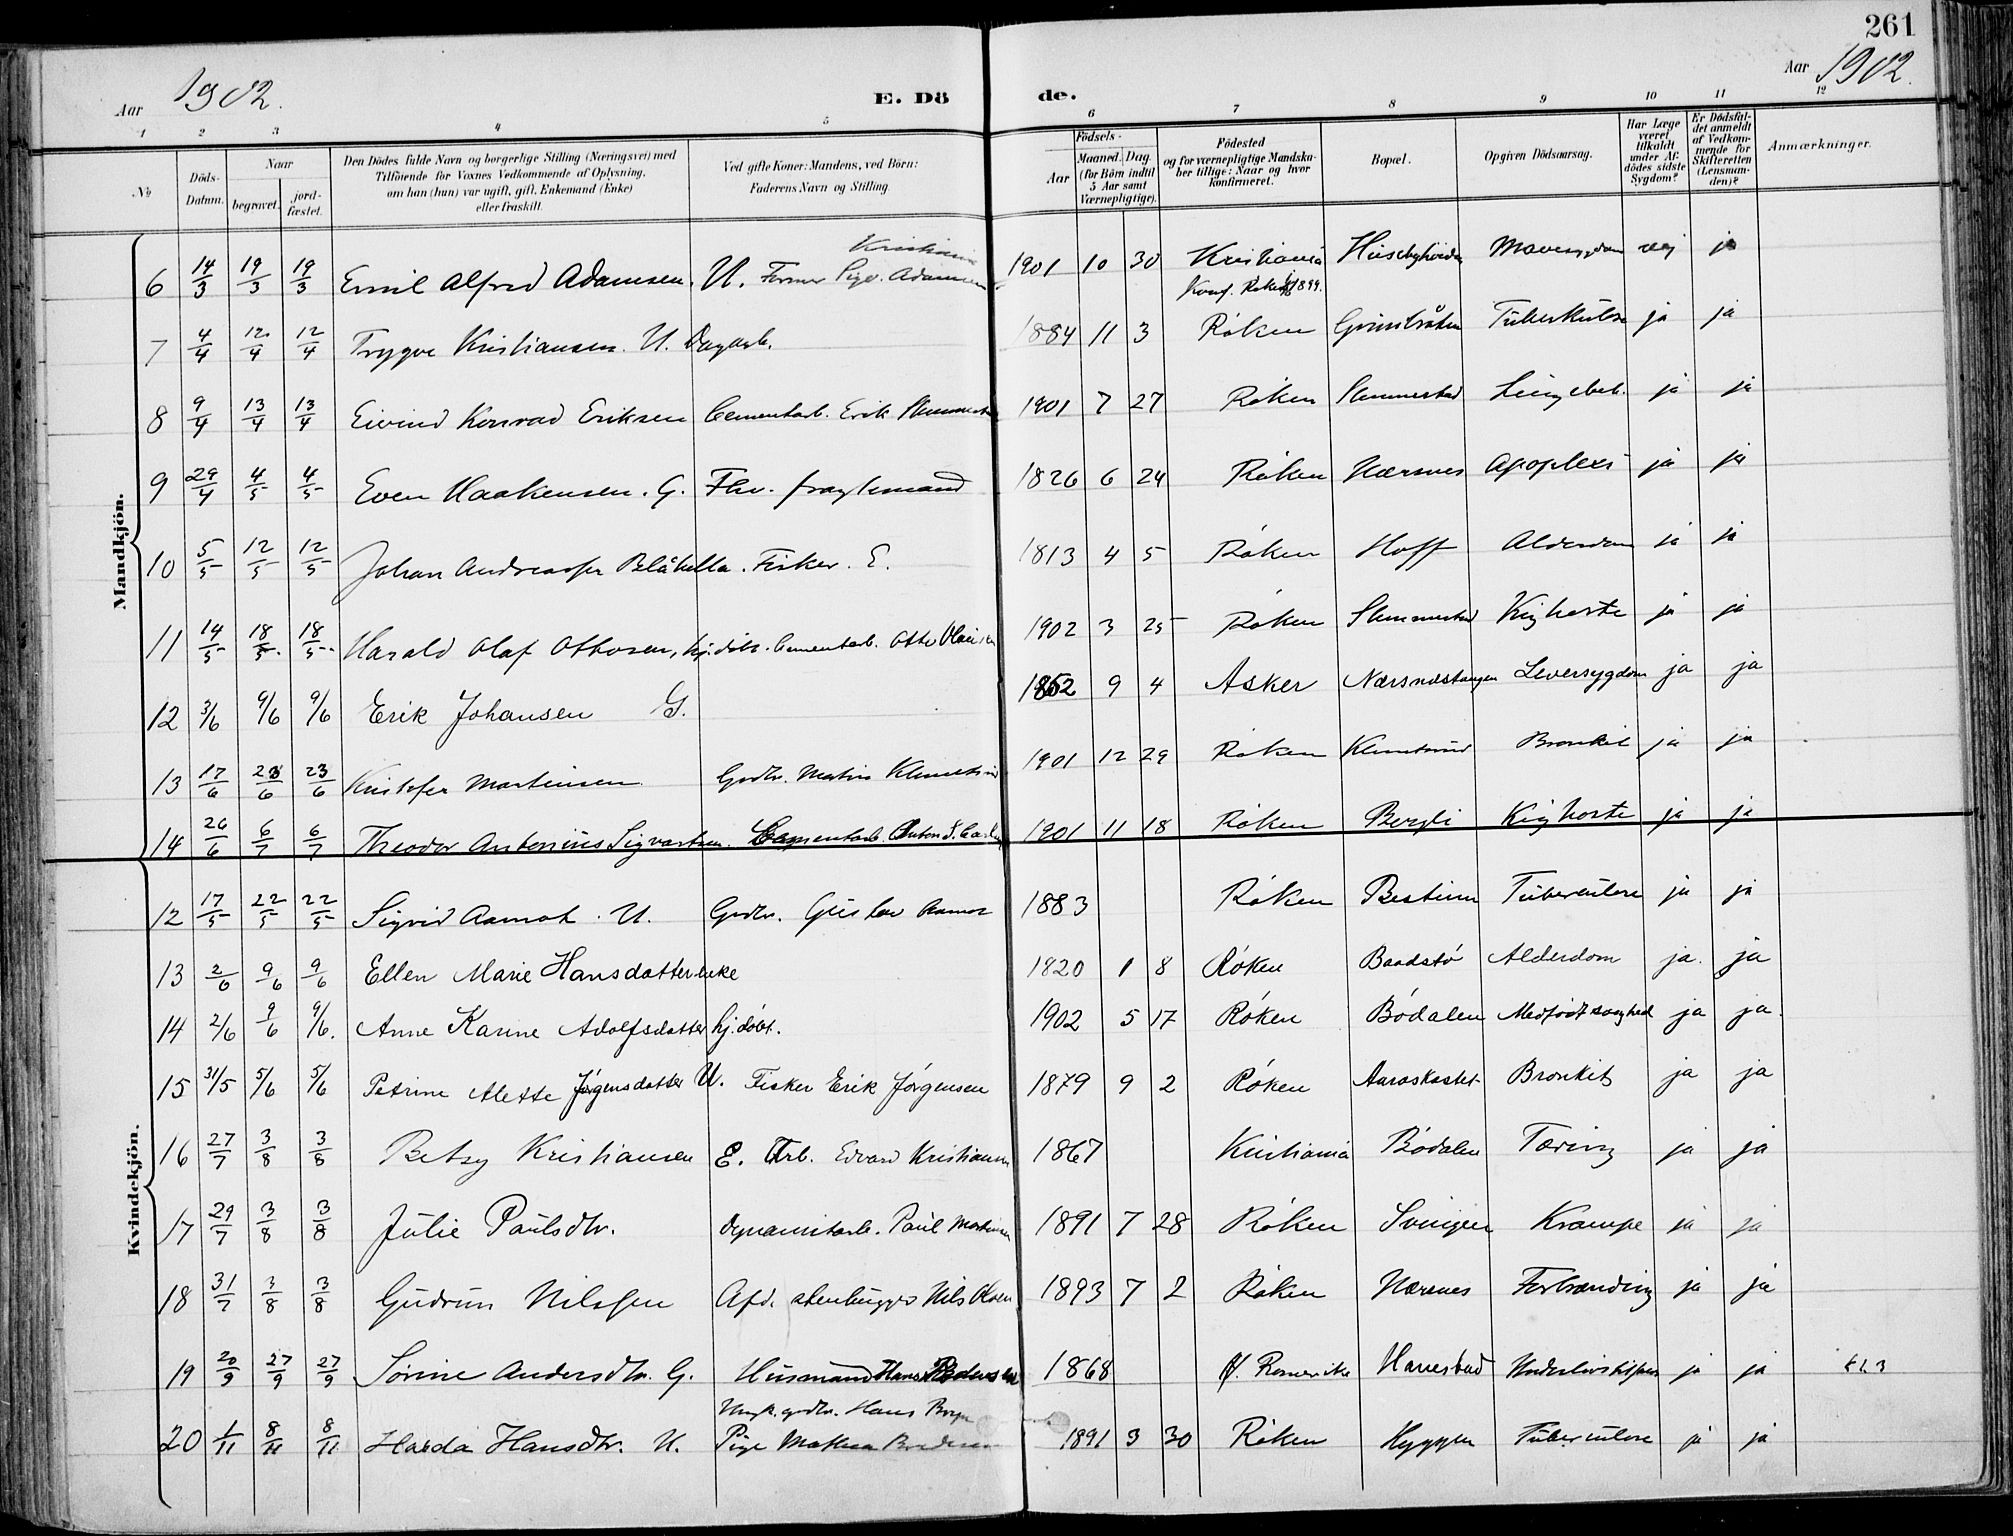 261
Aar 1902.
E. Dö
de.
Aar 1902.
1 2 3 4 5 6 7 8 9 10 11 12
No
Döds-Datum.
Naar
begravet.
jord-fæstet.
Den Dödes fulde Navn og borgerlige Stilling (Næringsvei) med
Tilföiende for Voxnes Vedkommende af Oplysning,
om han (hun) var ugift, gift, Enkemand (Enke)
eller fraskilt.
Ved gifte Koner: Mandens, ved Börn:
Faderens Navn og Stilling.
Födsels-
Aar
Maaned. Dag
(for Börn indtil
5 Aar samt
Værnepligtige).
Födested
og for værnepligtige Mandska-
ber tillige: Naar og hvor
konfirmeret.
Bopæl.
Opgiven Dödsaarsag.
Har Læge
været
tilkaldt
under Af-
dödes sidste
Sygdom?
Er Dödsfal-
det anmeldt
af Vedkom-
mende for
Skifteretten
(Lensman-
den)?
Anmærkninger.
Mandkjön.
6 14/3 19/3 19/3 Emil Alfred Adamsen. U. Former Sigv. Adamsen Kristiania 1901 10 30 Kristiania Mavesygdom nej ja
7 4/4 12/4 12/4 Trygve Kristiansen. U. Dagarb. 1884 11 3 Konf. Røken 1899. Røken Grimsbråten Tuberkulose ja ja
8 9/4 13/4 13/4 Eivind Konrad Eriksen Cementarb. Erik Slemmestad 1901 7 27 Røken Slemmestad Lungebet. ja ja
9 29/4 4/5 4/5 Even Haakensen. G. Fhv. fragtemand 1826 6 24 Røken Nærsnes Apoplexi ja ja
10 5/5 12/5 12/5 Johan Andreassen Blåkolla. Fisker. E. 1813 4 5 Røken Hoff Alderdom ja ja
11 14/5 18/5 18/5 Harald Olaf Othosen, hj. døbt. Cementarb. Otto Olausen 1902 3 25 Røken Slemmestad Kighoste ja ja
12 3/6 9/6 9/6 Erik Johansen G. 1852 9 4 Asker Nærsnæstangen Leversygdom ja ja
13 17/6 23/6 23/6 Kristofer Martinsen Grdbr. Martin Klemetsrud 1901 12 29 Røken Klemetsrud Bronkit ja ja
14 26/6 6/7 6/7 Theodor Antonius Sigvartsen. Cementarb. Anton S. 1901 11 18 Røken Bergli Kighoste ja ja
Kvindekjön.
12 17/5 22/5 22/5 Sigrid Aamot. U. Grdbr. Gustav Aamot 1883 Røken Tuberculose ja ja
13 2/6 9/6 9/6 Ellen Marie Hansdatter enke 1820 1 8 Røken Baadstø Alderdom ja. ja
14 2/6 9/6 9/6. Anne Karine Adolfsdatter hj. døbt. 1902 5 17 Røken Bødalen Medfødt svaghed ja ja.
15 31/5 5/6 5/6 Petrine Alette Jørgensdatter U. Fisker Erik Jørgensen 1879 9 2 Røken Aaroskastet Bronkit ja ja
16 27/7 3/8 3/8 Betsy Kristiansen E. Arb. Edvard Kristiansen 1867 Kristiania Bødalen Tæring ja ja
17 29/7 3/8 3/8 Julie Paulsdtr. Dynamitarb. Paul Martinsen 1891 7 28 Røken Svingen Krampe ja ja
18 31/7 3/8 3/8 Gudrun Nilssen Afd. stenhugger Nils Olsen 1893 7 2 Røken Nærsnes Forbrænding ja ja
19 20/9 27/9 27/9 Sørine Andersdtr. G. Husmand Hans Pedersen 1868 Ø. Romerike Hanestad ja ja
20 1/11 8/11 8/11 Harda Hansdtr. U. Ungk. grdbr. Hans Pige Mathea 1891 3 30 Røken Hyggen Tuberculose ja ja